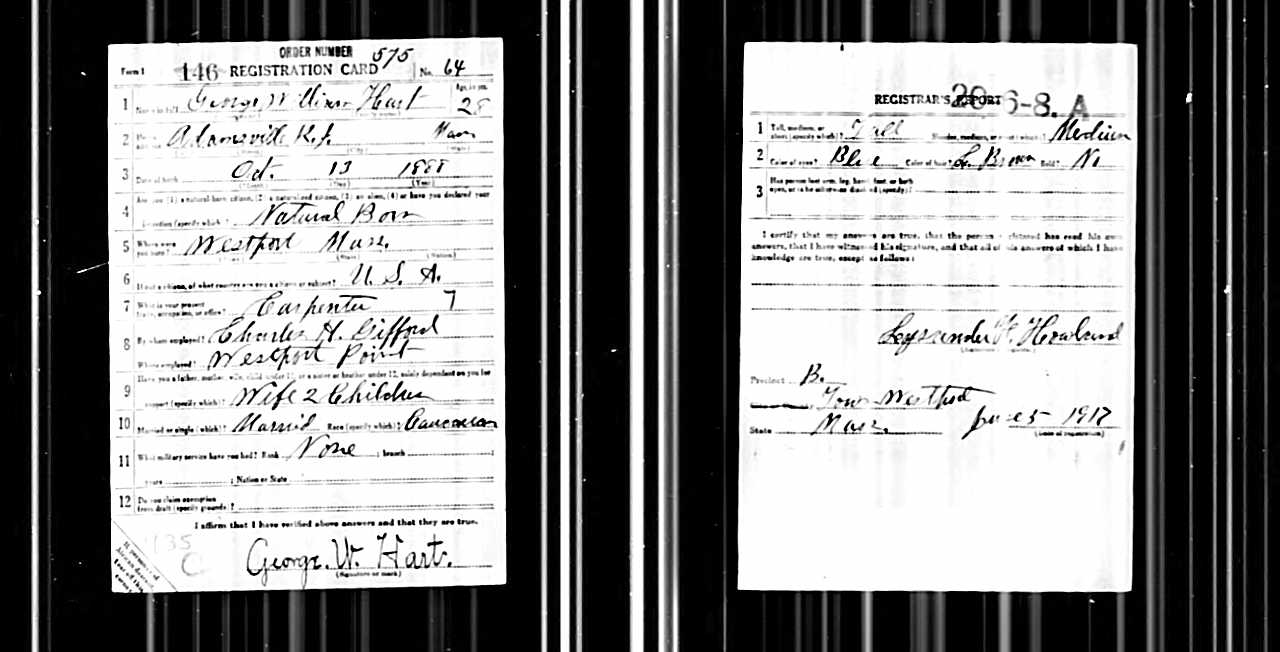 ORDER NUMBER 575
Form 1 146 REGISTRATION CARD No. 64
1 Name in full George William Hart Age, in yrs. 28
2 Adamsville R.I. Mass
3 Date of birth Oct. 13 1888
(Month) (Day) (Year)
4 Are you (1) a natural-born citizen, (2) a naturalized citizen, (3) an alien, (4) or have you declared your
intention (specify which)? Natural Born
5 Where were you born? Westport Mass.
(State) (Nation)
6 If not a citizen, of what country are you a citizen or subject? U. S. A.
7 What is your present trade, occupation, or office? Carpenter 7
8 By whom employed? Charles H. Gifford
Where employed? Westport Point
9 Have you a father, mother, wife, child under 12, or a sister or brother under 12, solely dependent on you for
support (specify which)? Wife 2 Children
10 Married or single (which)? Married Race (specify which)? Caucasian
11 What military service have you had? Rank None ; branch
years ; Nation or State
12 Do you claim exemption
from draft (specify grounds)?
I affirm that I have verified above answers and that they are true.
135
C
George. W. Hart.
(Signature or mark)
REGISTRAR'S REPORT 20-6-8. A
1 Tall, medium, or short (specify which)? Tall Slender, medium, or stout (which)? Medium
2 Color of eyes? Blue Color of hair? L. Brown Bald? No
3 Has person lost arm, leg, hand, foot, or both
eyes, or is he otherwise disabled (specify)?
I certify that my answers are true, that the person registered has read his own
answers, that I have witnessed his signature, and that all of his answers of which I have
knowledge are true, except as follows:
Lysander F. Howland
Precinct B.
Town Westport
State Mass. June 5 1917
(Date of registration)